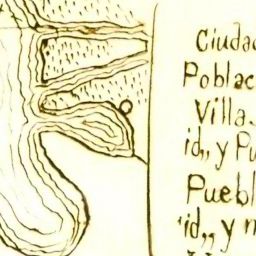 Ciudad
Poblac
Villa.
id,, y Pu
Puebl
id,, y